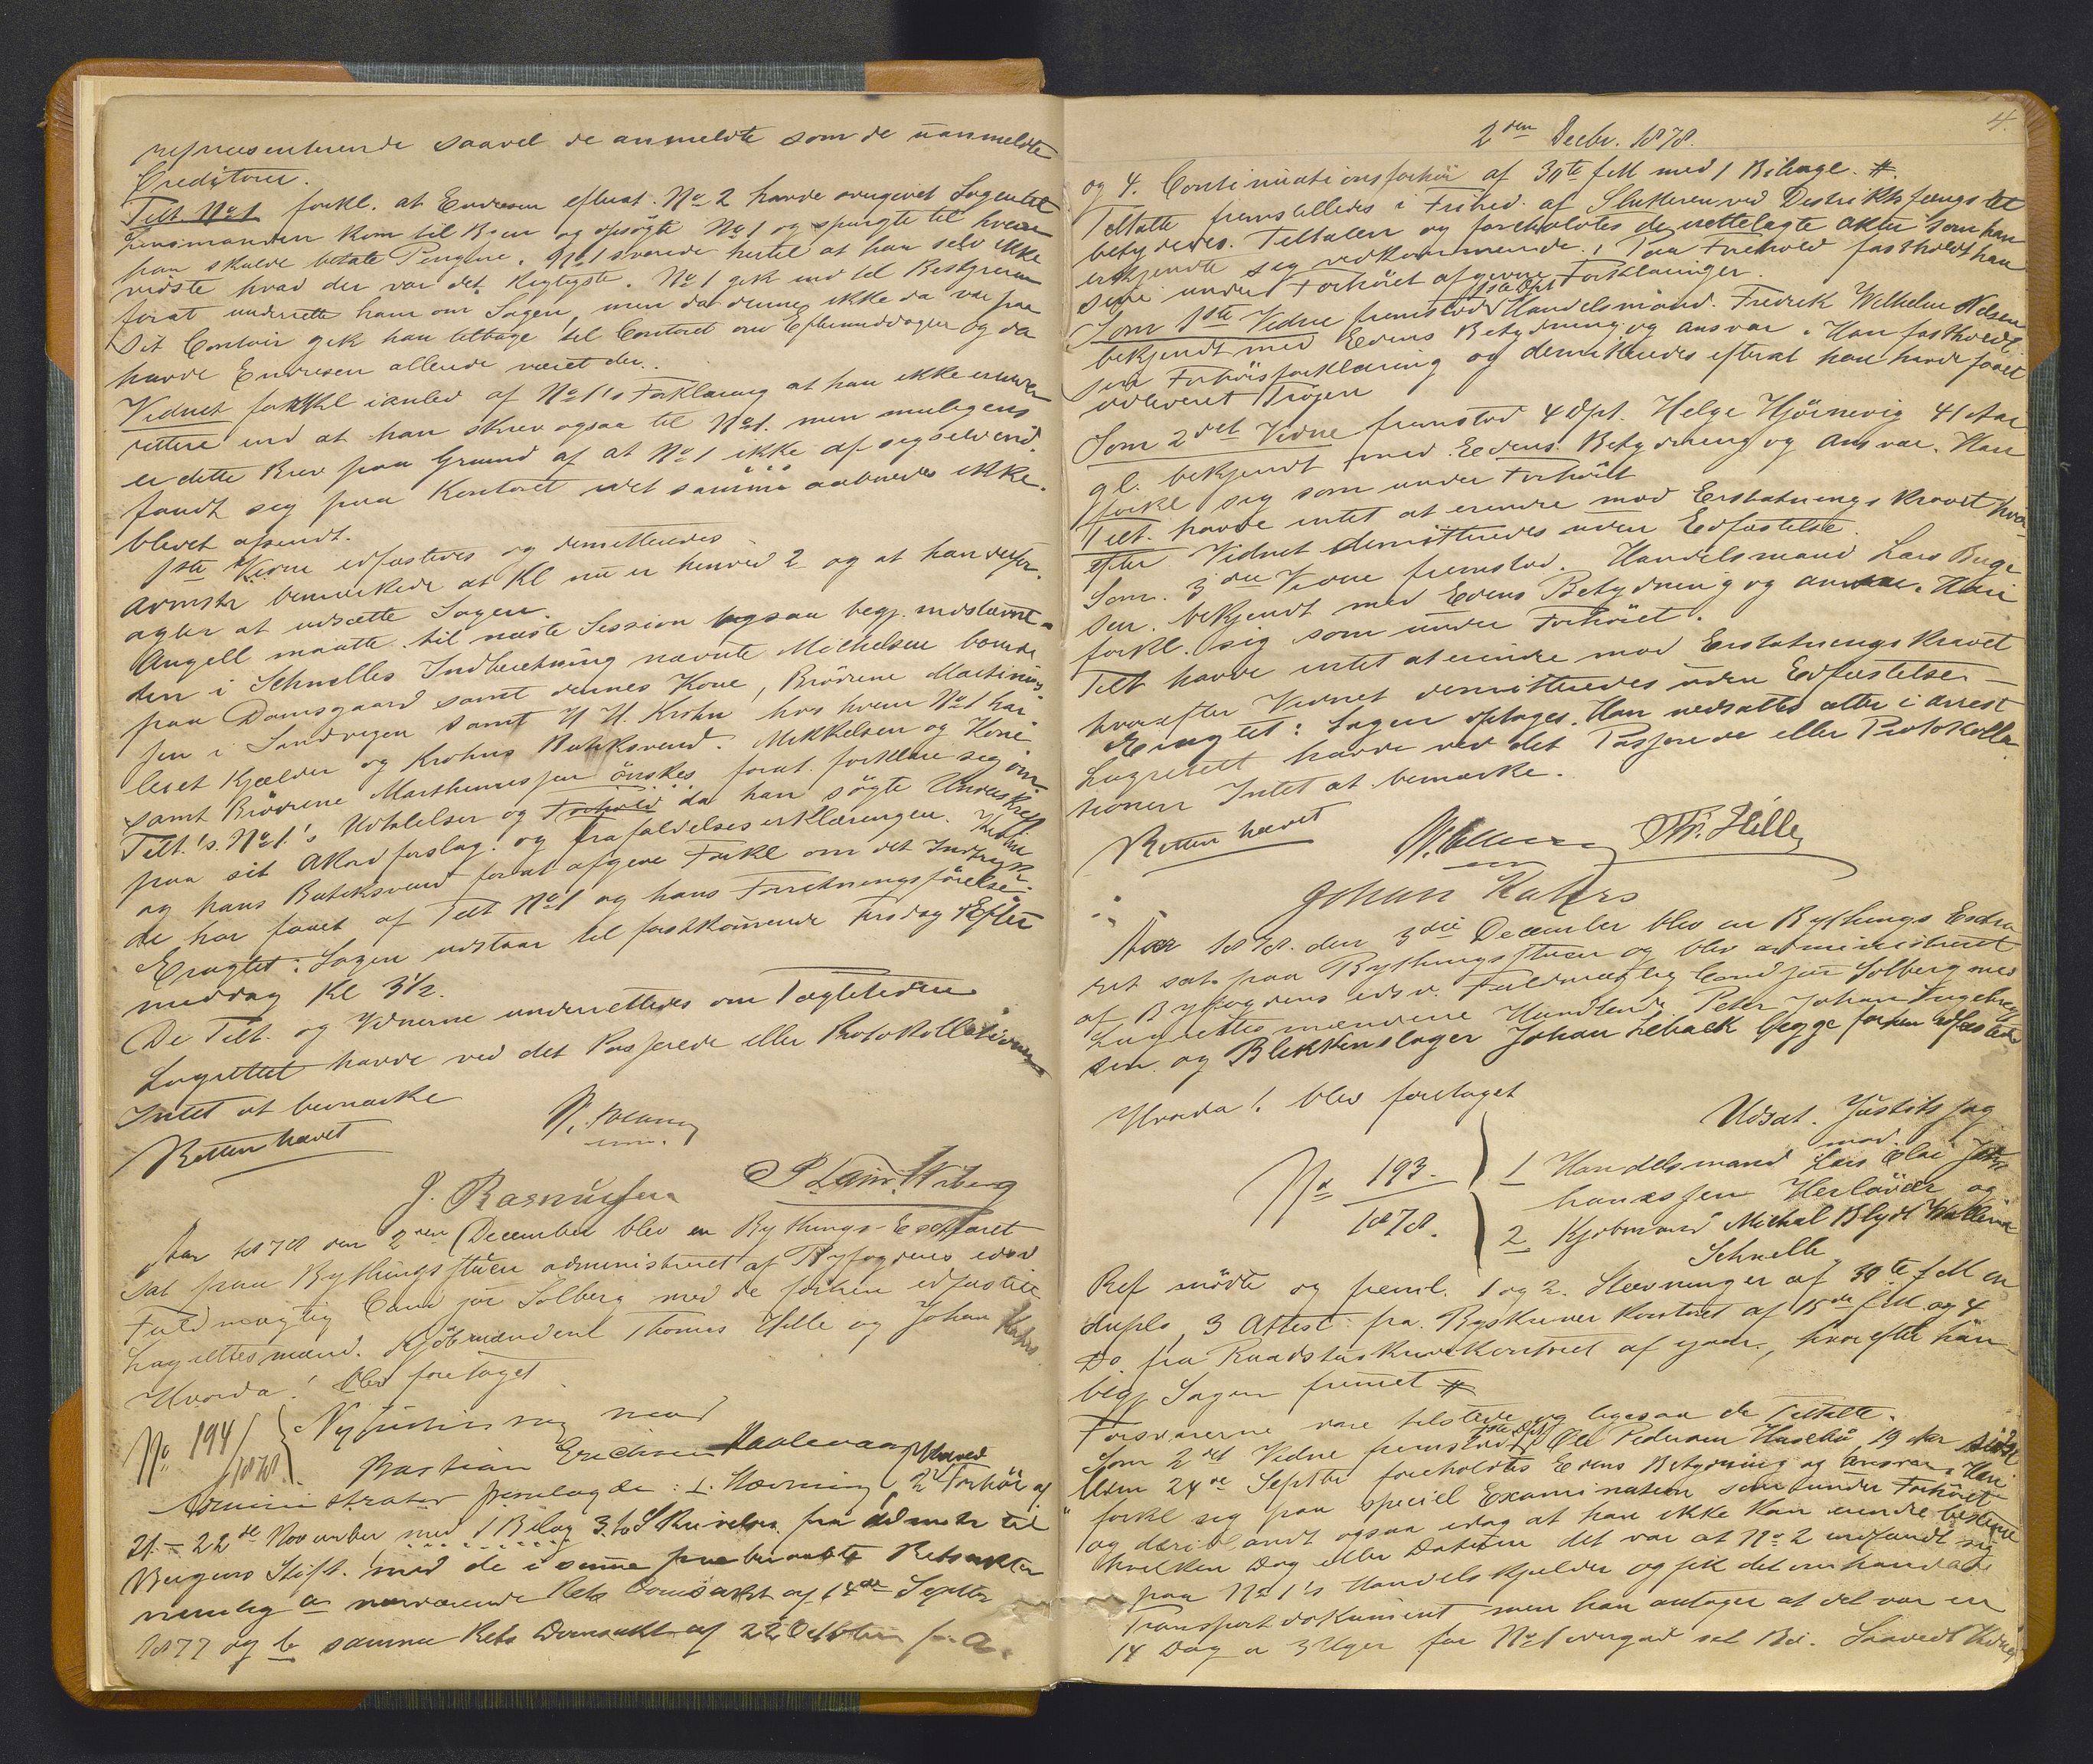 repræsenterende saavel de anmeldte som de uanmeldte
Creditorer.
Tilt No 1 forkl. at Endresen efterat No 2 havde overgivet Sagen til
Lensmanden kom til Byen og opsøgte No 1 og spurgte til hvem
han skulde betale Pengene. No 1 svarede hertil at han selv ikke
vidste hvad der var det rigtigste. No 1 gik ind til Bestyreren
forat underrette ham om Sagen, men da denne ikke da var paa
sit Contoir gik han tilbage til Contoret om Eftermiddagen og da
havde Endresen allerede været der.
Vidnet forkl i anled af No 1's Forklaring at han ikke erindrer
rettere end at han skrev ogsaa til No 1. men muligens
er dette Brev paa Grund af at No 1 ikke af sig selv ind
fandt sig paa Kontoret idet samme aabnedes ikke
blevet afsendt.
1ste Vidne edfæstedes og demitteredes
Admstr bemærkede at Kl nu er henved 2 og at han derfor
agter at udsætte Sagen.
Angell maatte til næste Session ogsaa begj. indstævnt
den i Schnelles Indberetning nævnte Michelsen boende
paa Damsgaard samt dennes Kone, Brødrene Martinius
sen i Sandvigen samt H H. Krohn hos hvem No 1 har
leiet Kjælder og Krohns Butiksvend. Mikkelsen og Kone
samt Brødrene Marthinussen ønskes forat forklare sig om
Tilt.'s No 1's Udtalelser og Forhold da han søgte Underskrift
paa sit Akordforslag og Frafaldelseserklæringen. Krohn
og hans Butiksvend forat afgive Forkl om det Indtryk
de har faaet af Tilt No 1 og hans Forretningsførelse.
Eragtet: Sagen udstaar til førstkommende Tirsdag Efter
middag Kl 3 1/2.
De Tilt. og Vidnerne underrettedes om Tægtetiden
Lagrettet havde ved det Passerede eller Protokollationen
Intet at bemærke
Retten hævet
J. Rasmussen
Aar 1878 den 2den December blev en Bythings-Extraret
sat paa Bythingsstuen administreret af Byfogdens edsv
Fuldmægtig Cand jur Solberg med de forhen edfæstede
Lagrettesmænd. Kjøbmændene Thomas Hille og Johan Kahrs
Hvorda! blev foretaget
No 194/1878. Ny Justitssag mod
Bastian Erichsen
Administrator fremlagde: 1. Stævning 2 Forhør af
21 - 22de November med 1 Bilag 3. Skrivelse fra Admstr til
Bergens Stift. med de i samme paaberaabte Retsakter
nemlig a nærværende Rets Domsakt af 14de Septbr
1877 og b samme Rets Domsakt af 22 Octbr f. a.
2den Decbr. 1878.
4.
og 4. Continuationsforhør af 30te f M med 1 Bilag. #.
Tiltalte fremstilledes i Frihed af Slutteren ved Distriktsfængslet
betydedes Tiltalen og foreholdtes de rettelagte Akter som han
erkjendte sig vedkommende. Paa Forehold fastholdt han
sine under Forhøret afgivne Forklaringer.
Som 1ste Vidne fremstod 1ste Opr Handelsmand. Fredrik Wilhelm Nilsen
bekjendt med Edens Betydning og Ansvar. Han fastholdt
sin Forhørsforklaring og demitteredes efterat han havde faaet
udleveret Trøjen
Som 2det Vidne fremstod 4 Opr. Helge Hjørnevig 41 Aar
gl. bekjendt med Edens Betydning og Ansvar. Han
forkl sig som under Forhøret
Tilt. havde intet at erindre mod Erstatningskravet hvor
efter Vidnet demitteredes uden Edfæstelse.
Som 3die Vidne fremstod. Handelsmand Lars Buge
sen. bekjendt med Edens Betydning og Ansvar. Han
forkl. sig som under Forhøret.
Tilt havde intet at erindre mod Erstatningskravet
hvorefter Vidnet demitteredes uden Edfæstelse
Eragtet: Sagen optages. Han nedsattes atter i Arrest
Lagrettet havde ved det Passerede eller Protokolla
tionen Intet at bemærke.
Retten hævet
Th. Hille
Johan Kahrs
Aar 1878. den 3die December blev en Bythings Extra
ret sat paa Bythingsstuen og blev administreret
af Byfogdens edsv. Fuldmægtig Cand jur Solberg med
Lagrettesmændene Handlende Peter Johan Ingebrigt
sen og Blikkenslager Johan Lebæck begge forhen edfæstede
Hvorda! blev foretaget
Udsat. Justitssag
mod.
No 193./1878.
1 Handelsmand Lars Olai Jo
hanessen Herløvær og
2 Kjøbmand Michal Blydt
Schnelle
Ref mødte og freml. 1 og 2. Stævninger af 30te f M in
duplo, 3 Attest fra Byskriverkontoret af 15de f M. og 4
Do fra Raadstuskriverkontoret af igaar, hvorefter han
begj Sagen fremet #
Forsvarerne vare tilstede og ligesaa de Tiltalte.
Som 2det Vidne fremstod 1ste Opr Ole Pedersen Husebø 19 Aar siden
den 24de Septbr foreholdtes Edens Betydning og Ansvar. Han
forkl sig paa speciel Examination som under Forhøret
og deriblandt ogsaa idag at han ikke kan erindre bestemt
hvilken Dag eller Datum det var at No 2 indfandt sig
paa No 1's Handelskjelder og fik det omhandlede
Transportdokument men han antager at det var en
14 Dag a 3 Uger før No 1 overgav sit Bo. Saavidt Vidnet